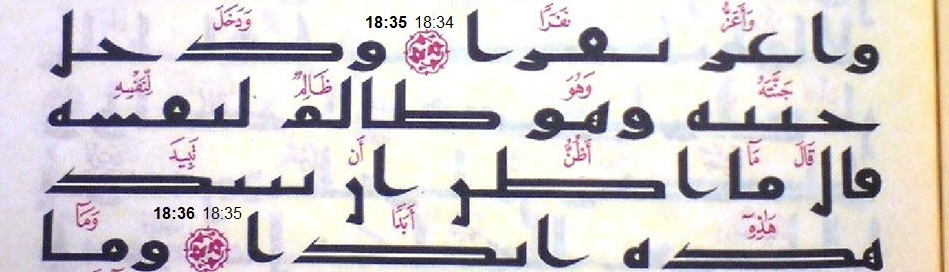 وَأَعَزُّ نَفَرًا 18:35 18:34 وَدَخَلَ
واعز نفرا ودخل
جَنَّتَهُ وَهُوَ ظَالِمٌ لِّنَفْسِهِ
جنته وهو ظالم لنفسه
قَالَ مَآ أَظُنُّ أَن تَبِيدَ
قال ما اظن ان تبيد
هَٰذِهِۦٓ أَبَدًا 18:36 18:35 وَمَآ
هذه ابدا وما